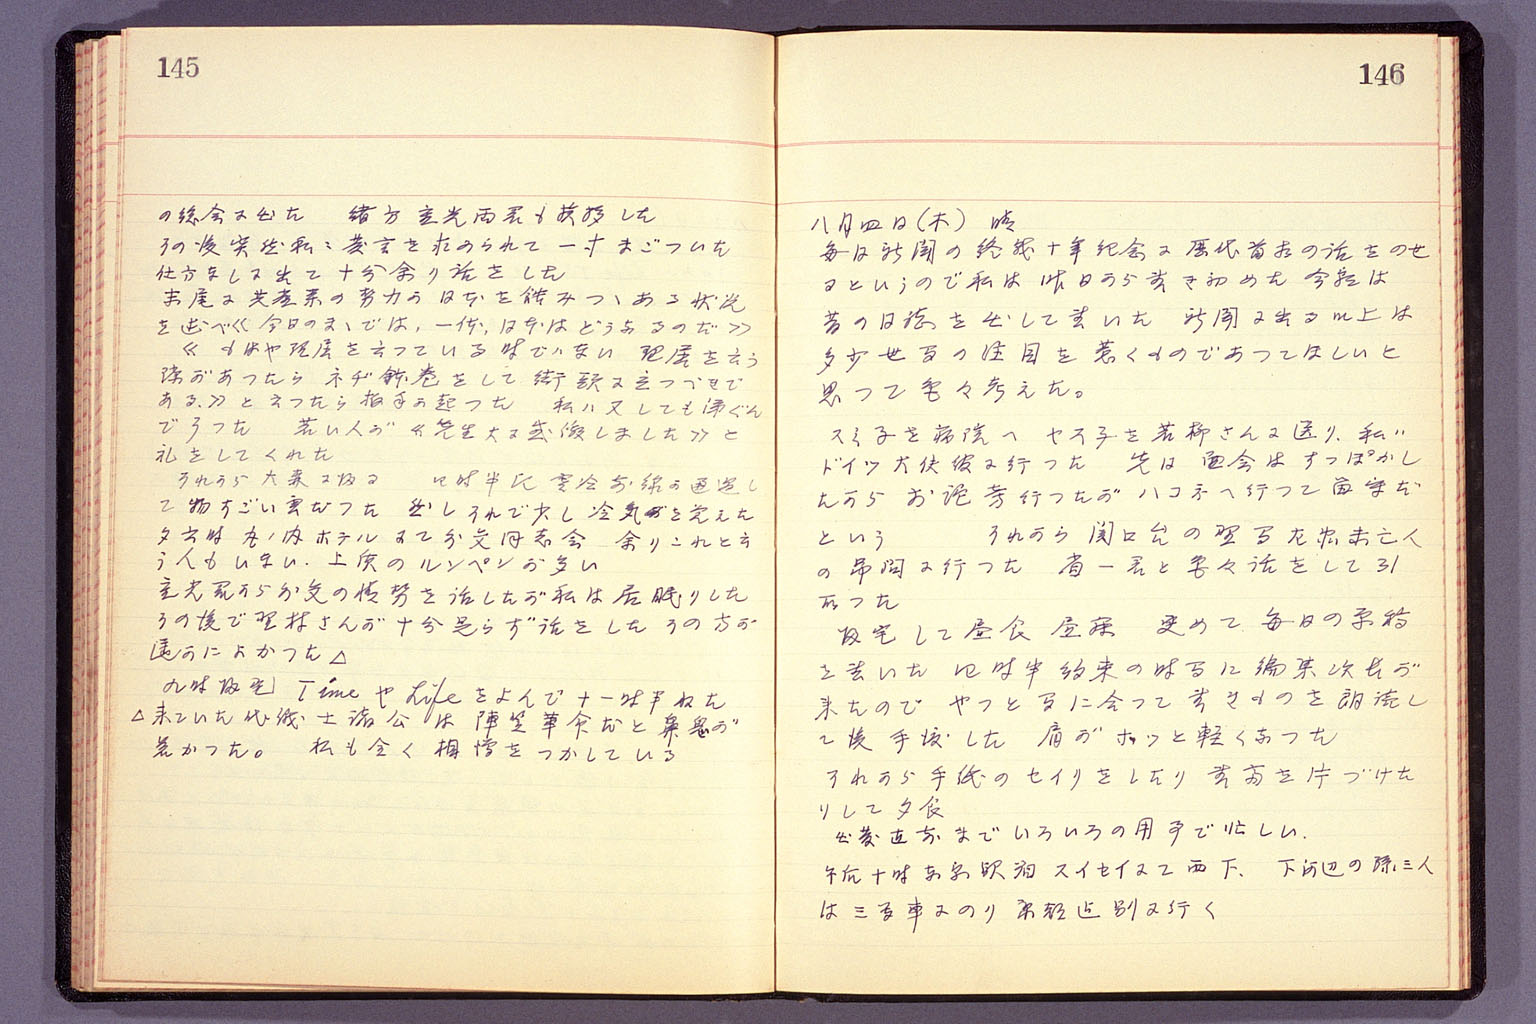 145
の総会に出た 緒方 立光両君も挨拶した
その後突然私に発言を求められて 一寸まごついた
仕方なしに出て十分余り話をした
末尾に共産系の努力が日本を蝕みつゝある状況
を述べ≪今日のまゝでは、一体、日本はどうなるのだ≫
≪もはや理屈を云つている時ではない 理屈を云う
隙があつたら ネヂ鉢巻をして 街頭に立つべきで
ある、≫と云つたら拍手が起つた 私ハ又しても涙ぐん
でゐつた 若い人が≪先生大に感激しました≫と
礼をしてくれた
それから大森に帰る 四時半頃 寒冷前線が通過し
て物すごい雲だつた 然しそれで少し冷気を覚えた
夕六時 丸ノ内ホテルにて外交同志会 余りこれと云
う人もいない、上質のルンペンが多い
立光君から外交の情勢を話したが私は居眠りした
その後で野村さんが十分足らず話をした その方が
遥かによかつた△
九時帰宅 TimeやLifeをよんで十一時半ねた
△来ていた代議士諸公は 陣笠革命だと鼻息が
荒かつた。 私も全く相憎をつかしている
146
八月四日(木) 晴
毎日新聞の終戦十年紀念に歴代首相の話をのせ
るというので私は昨日から書き初めた 今朝は
昔の日誌を出して書いた 新聞に出る以上は
多少世間の注目を惹くものであつてほしいと
思つて色々考えた。
スミ子を病院へ ヤス子を若柳さんに送り、私ハ
ドイツ大使館に行つた 先日面会はすつぽかし
たから お詫旁行つたが ハコネへ行つて留守だ
という それから関口台の 未亡人
の弔問に行つた 省一君と色々話をして引
取つた
帰宅して昼食 昼寝 更めて毎日の原稿
を書いた 四時半約束の時間に編集次長が
来たので やつと間に合つて書きものを朗読し
て後手渡した 肩がホッと軽くなつた
それから手紙のセイリをしたり 書斎を片づけた
りして夕食
出発直前までいろいろの用事で忙しい、
午后十時東京駅発 スイセイにて西下、 下河辺の孫三人
は三等車にのり 京都近別に行く